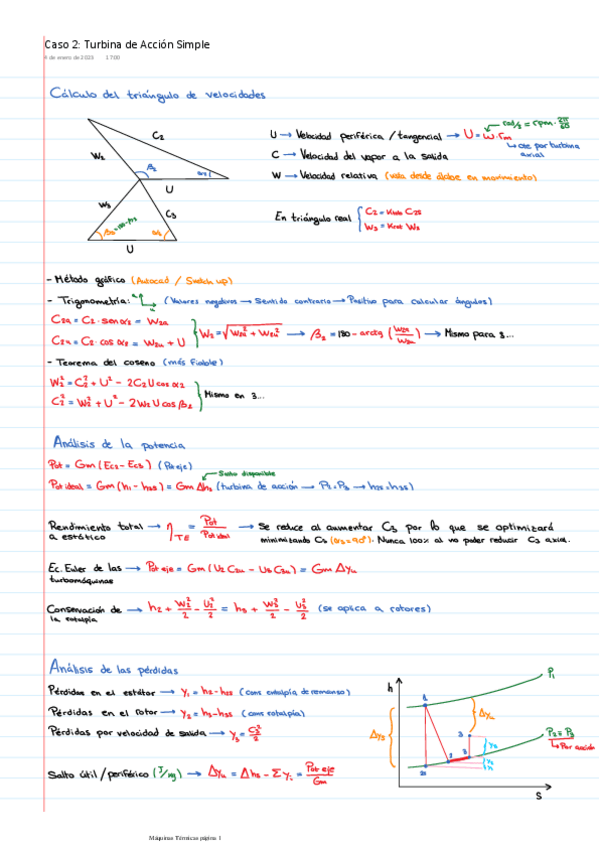 Caso 2: Turbina de Acción Simple
4 de enero de 2023 17:00
Cálculo del triángulo de velocidades
C₂
W₂
β₂
α₂
U
W₃
C₃
α₃
U
rad/s = rpm · 2π/60
U → Velocidad periférica / tangencial → U = ω · rm
cte por turbina axial
C → Velocidad del vapor a la salida
W → Velocidad relativa (vista desde álabe en movimiento)
En triángulo real { C₂ = Kₜₒᵦ C₂ₛ
W₃ = Kᵣₒₜ W₂
- Método gráfico (Autocad / Sketch up)
- Trigonometría: (Valores negativos → Sentido contrario → Positivo para calcular ángulos)
C₂ₐ = C₂ · sen α₂ = W₂ₐ
C₂ᵤ = C₂ · cos α₂ = W₂ᵤ + U
W₂ = √(W₂ₐ² + W₂ᵤ²) → β₂ = 180 - arctg → Mismo para 3...
- Teorema del coseno (más fiable)
W₂² = C₂² + U² - 2C₂U cos α₂
C₂² = W₂² + U² - 2W₂U cos β₂
Mismo en 3...
Análisis de la potencia
Pot = Gm (Pot eje)
Salto disponible
Pot ideal = Gm (h₁ - h₃ₛ) = Gm Δhₛ (turbina de acción → P₂ = P₃ → h₂ₛ = h₃ₛ)
Rendimiento total a estático → η_TE = Pot / Pot ideal → Se reduce al aumentar C₃ por lo que se optimizará
minimizando C₃ (α₃ = 90°). Nunca 100% al no poder reducir C₃ axial.
Ec. Euler de las turbomáquinas → Pot eje = Gm (U₂ C₂ᵤ - U₃ C₃ᵤ) = Gm Δyᵤ
Conservación de la rotalpía → h₂ + W₂²/2 - U₂²/2 = h₃ + W₃²/2 - U₃²/2 (se aplica a rotores)
Análisis de las pérdidas
Pérdidas en el estátor → y₁ = h₂ - h₂ₛ (cons entalpía de remanso)
Pérdidas en el rotor → y₂ = h₃ - h₃ₛ (cons rotalpía)
Pérdidas por velocidad de salida → y₃ = C₃²/2
Salto útil / periférico (J/kg) → Δyᵤ = Δhₛ - Σyᵢ = Pot eje / Gm
h
P₁
1
Δyᵤ
P₂ = P₃
Por acción
2
3
S
Máquinas Térmicas página 1